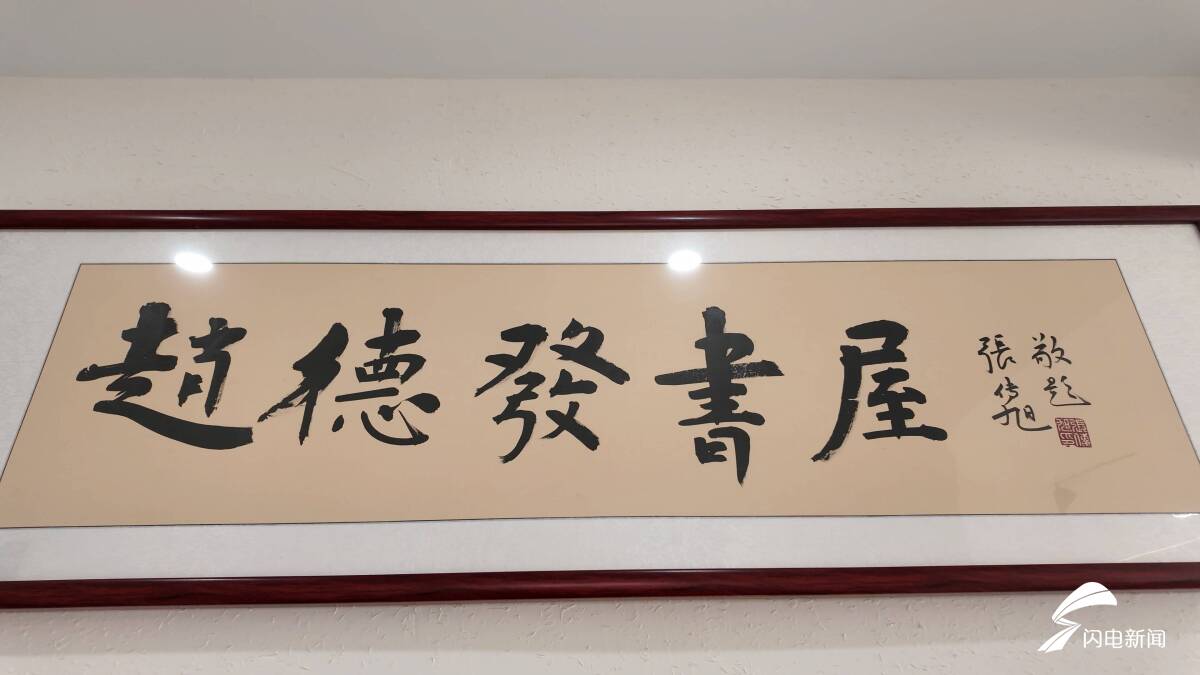 趙德發書屋
敬題
張传旭
闪电新闻